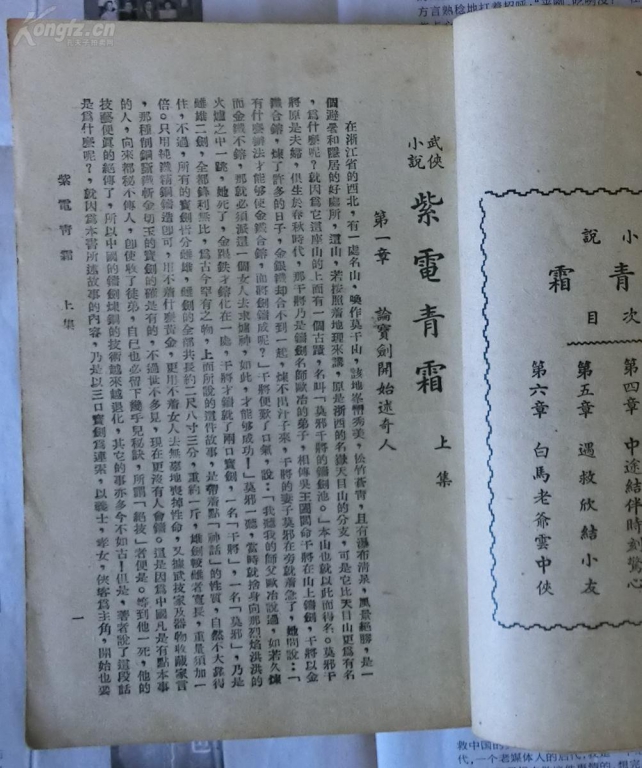 小說
青
霜
次
目
第四章 中途結伴眙劍驚心
第五章 遇救欣結小友
第六章 白馬老爺雲中俠
武俠小說
紫電青霜 上集
第一章 論寶劍開始述奇人
在浙江省的西北,有一處名山,喚作莫干山,該地峯巒秀美,松竹蒼青,且有瀑布清泉,風景絕勝,是一
個避暑和隱居的好處所,這山,若按照着地理來講,原是浙西的名嶽天目山的分支,可是它比天目山更爲有名
,爲什麼呢?就因爲它這座山的上面有一個古蹟,名叫「莫邪干將的鑄劍池。」本山也就以此而得名。莫邪干
將原是夫婦,俱生於春秋時代,那干將乃是鑄劍名師歐冶的弟子,相傳吳王闔閭命干將在山上鑄劍,干將以金
鐵合鎔,煉了許多的日子,金銀鐵却合不到一起,煉不出汁子來,干將的妻子莫邪在旁就着急了,她問說:「
有什麼辦法才能够使金鐵合鎔,而將劍鑄成呢?」干將便歎了口氣,說:「我聽我的師父歐冶說過,如若久煉
而金鐵不鎔,那就必須派遣一個女人去求爐神,如此,才能够成功!」莫邪一聽,當時就捨身向那烈焰洪洪的
火爐之中一跳,她死了,金跟鉄才鎔化在一處,干將才鑄就了兩口寶劍,一名「干將」,一名「莫邪」,乃是
雌雄二劍,全都鋒利無比,爲古今罕有之物,上面所說的這件故事,是帶着點「神話」的性質,自然不大靠得
住,不過,所有的寶劍皆分雌雄,雌劍的全部共長約二尺八寸三分,重約一斤,雄劍較雌者寬長,重量須加一
倍。只用純鐵精鋼鑄造卽可,用不着什麼黃金,更用不着女人去無辜地喪掉性命,又據武技家及器物收藏家言
,那種削銅剁鐵斬金切玉的寶劍的確是有的,不過世不多見,現在更沒有人會鑄。這是因爲中國凡是有點本事
的人,向來都秘不傳人,卽使收了徒弟,自已也必留下幾手兒秘訣,所謂「絕技」者便是。等到他一死,他的
技藝便算的絕傳了,所以中國的鑄劍煉鋼的技術越來越退化,其它的事亦多今不如古!但是,著者說了這段話
是爲什麼呢?,就因爲本書所述故事的內容,乃是以三口寶劍爲連索,以義士,孝女,俠客爲主角,開始也要
紫電青霜 上集
一
Kongfz.cn